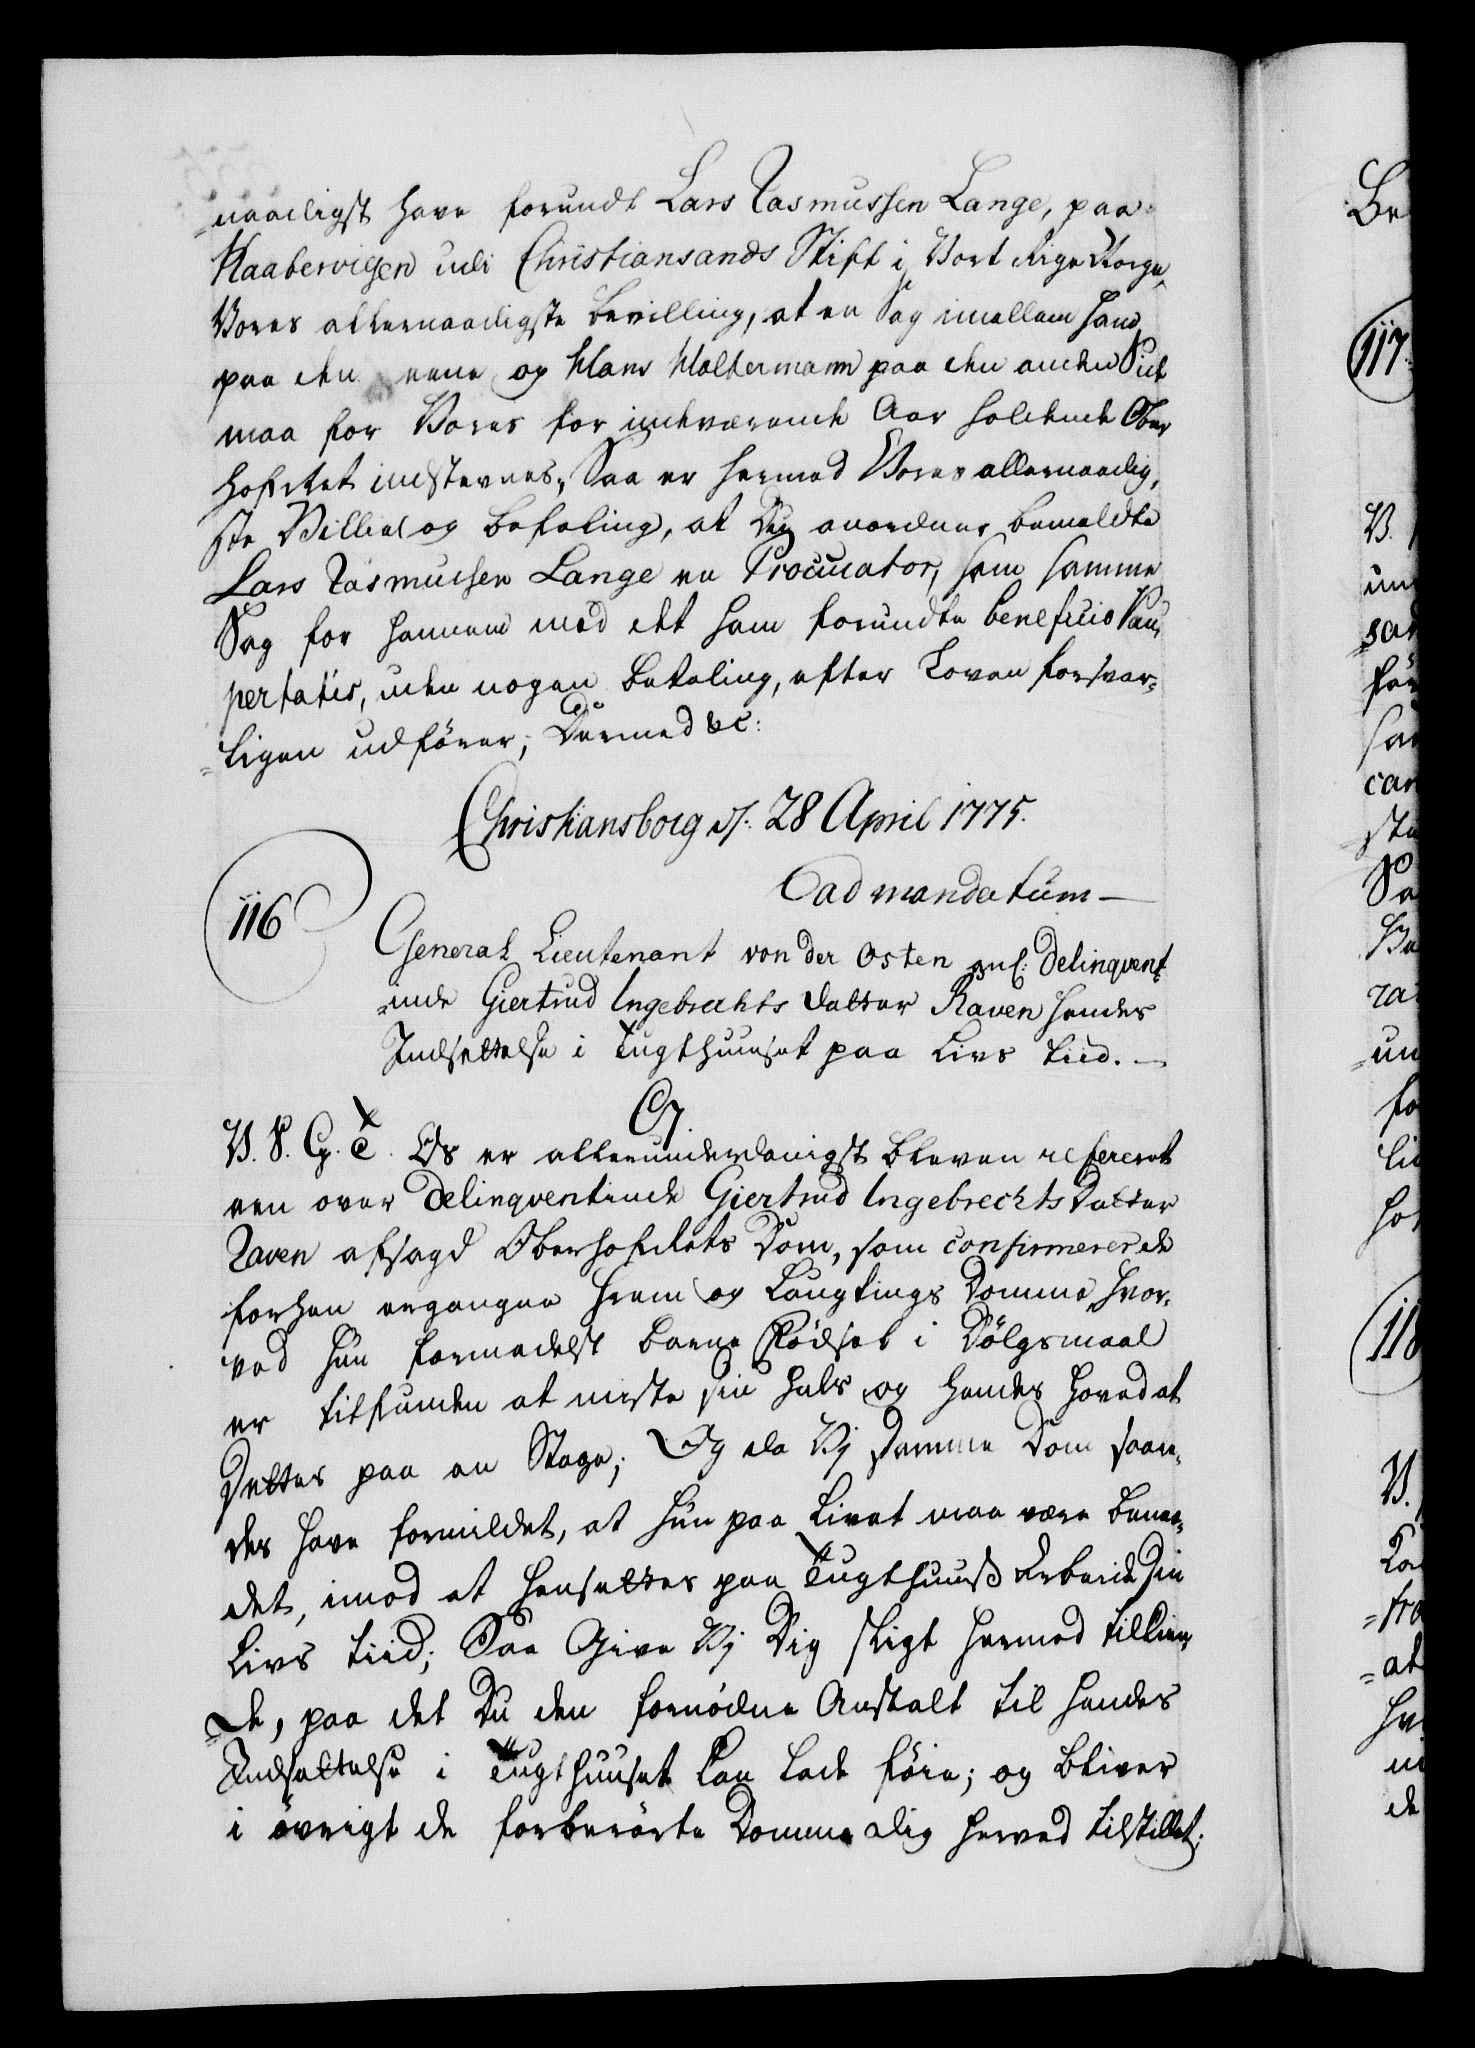 naadigst have forundt Lars Rasmussen Lange, paa
Kaabervigen udi Christiansands Stift i Vort Rige Norge,
Vores allernaadigste bevilling, at en Sag imellem ham
paa den eene og Klaus Woltermann paa den anden Side
maa for Vores for indeværende Aar holdende Ober
hofRet indstevnes, Saa er hermed Vores allernaadig,
ste Villie og befaling, at Du anordner bemeldte
Lars Rasmussen Lange en Procurator, som samme
Sag for hannem med det ham forundte beneficio Pau,
pertatis, uden nogen betaling, efter Loven forsvar-
=ligen udfører; Dermed &c:
Christiansborg d: 28 April 1775.
Cad mandatum —
116
General Lieutenant von der Osten anl: Delinqvent
=inde Giertrud Ingebrechts datter Raven hendes
Indsettelse i Tugthuuset paa Livs tiid. —
C7.
V. S. G. T. Os er allerunderdanigst bleven refereret
een over Delinqventinde Giertrud Ingebrechts Datter
Raven afsagd Oberhofrets Dom, som confirmerer de
forhen ergangne hiem og Laugtings Domme, hvor-
ved hun formedelst barne Fødsel i Dølgsmaal
er tilfunden at miste sin hals og hendes hoved at
settes paa en Stage; Og da Vi samme Dom saale-
des have formildet, at hun paa Livet maa være benaa-
det, imod at hensettes paa Tugthuuss Arbeide sin
Livs tiid; Saa Give Vi Dig sligt hermed tilkien-
=de, paa det Du den fornødne Anstalt til hendes
Indsettelse i Tugthuuset kan lade føie; og bliver
i øvrigt de forberørte Domme dig herved tilstillet;
Be
117
V.
um
san
før
ha
can
ste
Sa
ra
=un
fo
lii
ho
118
V.
=fra
=at
hv
ni
de